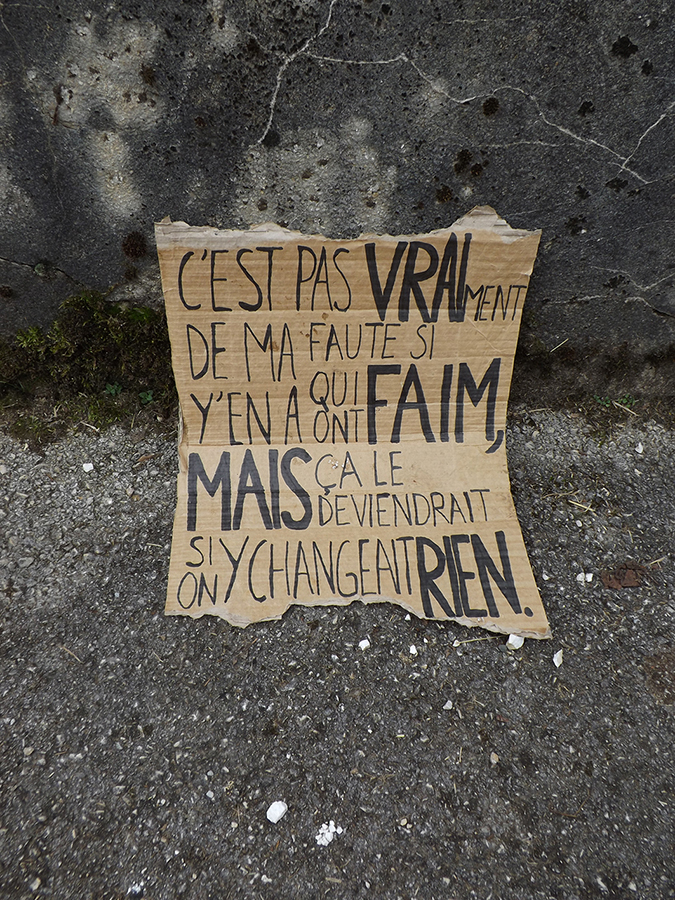 C'EST PAS VRAIMENT
DE MA FAUTE SI
Y'EN A QUI ONT FAIM,
MAIS ÇA LE DEVIENDRAIT
SI ON Y CHANGEAIT RIEN.